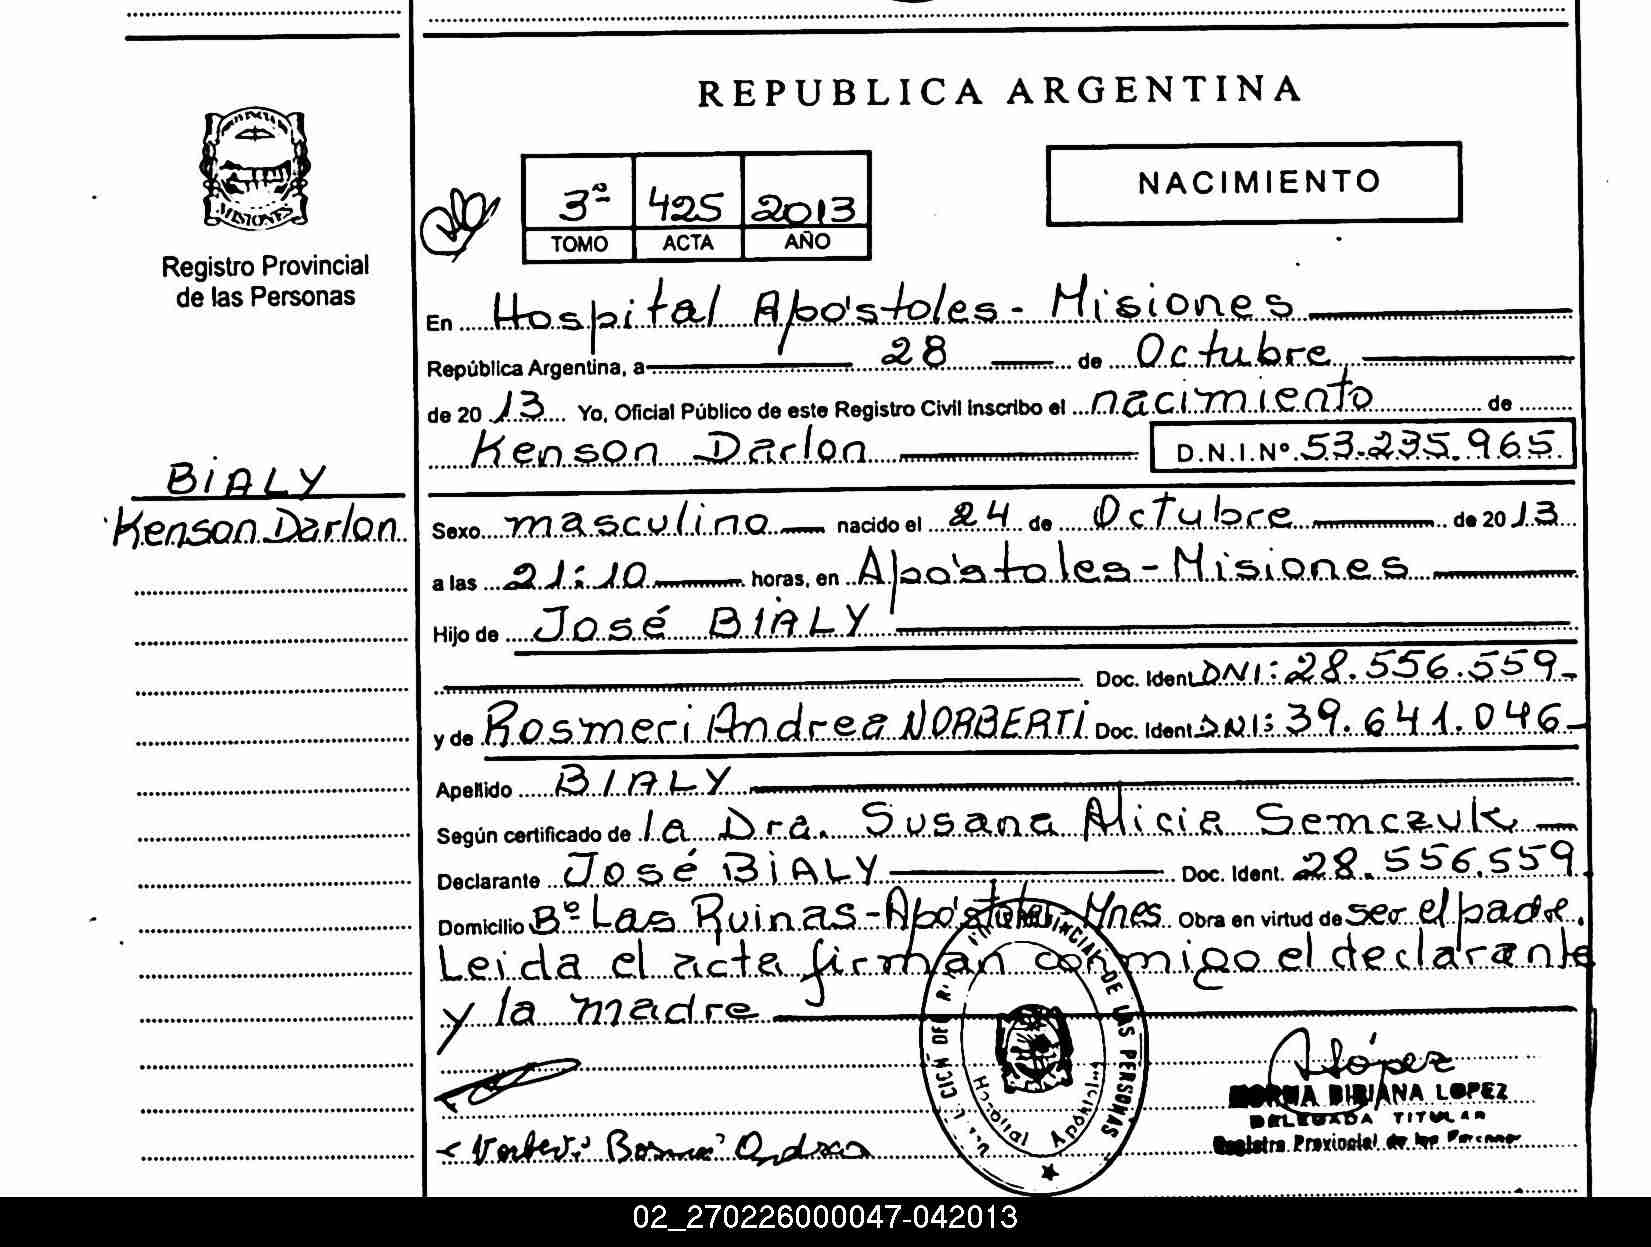 REPUBLICA ARGENTINA
MISIONES
Registro Provincial
de las Personas
3ª 425 2013
TOMO ACTA AÑO
NACIMIENTO
En Hospital Apóstoles - Misiones
República Argentina, a 28 de Octubre
de 2013 Yo, Oficial Público de este Registro Civil Inscribo el nacimiento de
Kenson Darlon D.N.I.Nº 53.235.965
BIALY
Kenson Darlon
Sexo masculino nacido el 24 de Octubre de 2013
a las 21:10 horas, en Apóstoles - Misiones
Hijo de José BIALY
Doc. Ident DNI: 28.556.559-
y de Rosmeri Andrea NORBERTI Doc. Ident DNI: 39.641.046-
Apellido BIALY
Según certificado de la Dra. Susana Alicia Semczuk
Declarante José BIALY Doc. Ident. 28.556.559
Domicilio Bº Las Ruinas - Apóstoles - Mnes Obra en virtud de ser el padre.
Leida el acta firman conmigo el declarante
y la madre
PROVINCIAL DE LAS PERSONAS
Hospital Apóstoles
López
NORMA BIBIANA LOPEZ
DELEGADA TITULAR
Registro Provincial de las Personas
Norberti Andrea
02_270226000047-042013